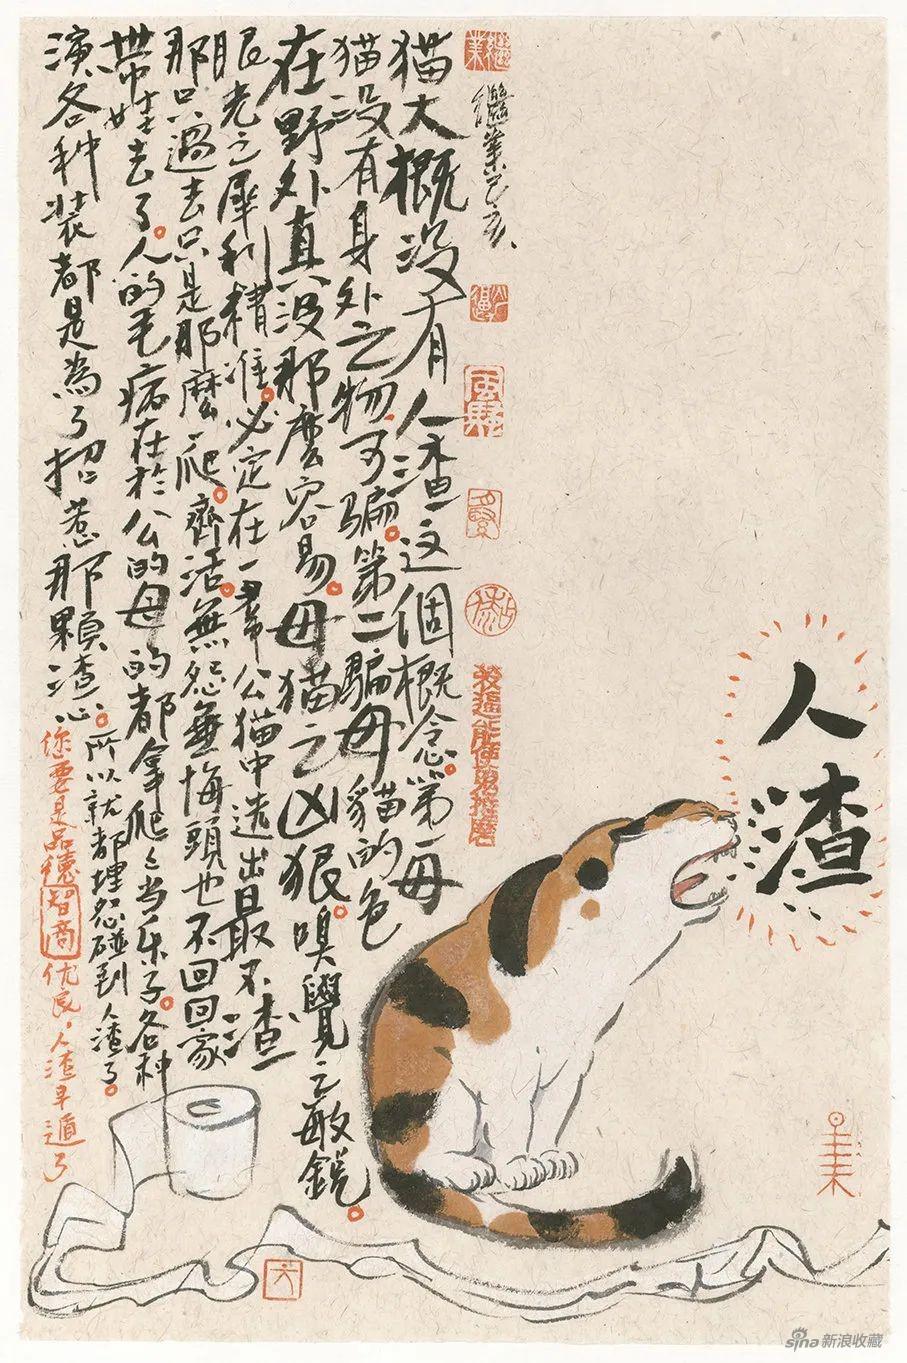 继業
繼業己亥
猫大概没有人渣这個概念。第一每
猫没有身外之物可骗。第二骗母貓的色
在野外真没那麽容易。母猫之凶狠。嗅覺之敏鋭。
眼光之犀利精准。必定在一羣公猫中选出最不渣
那只過去只是那麽一爬。齊活。無怨無悔頭也不回回家
带娃去了。人的毛病在於公的母的都拿爬々当乐子。各种
演各种装都是為了招惹那顆渣心。所以就都埋怨碰到人渣了。
您要是品德智商优良。人渣早遁了
人渣
sina新浪收藏